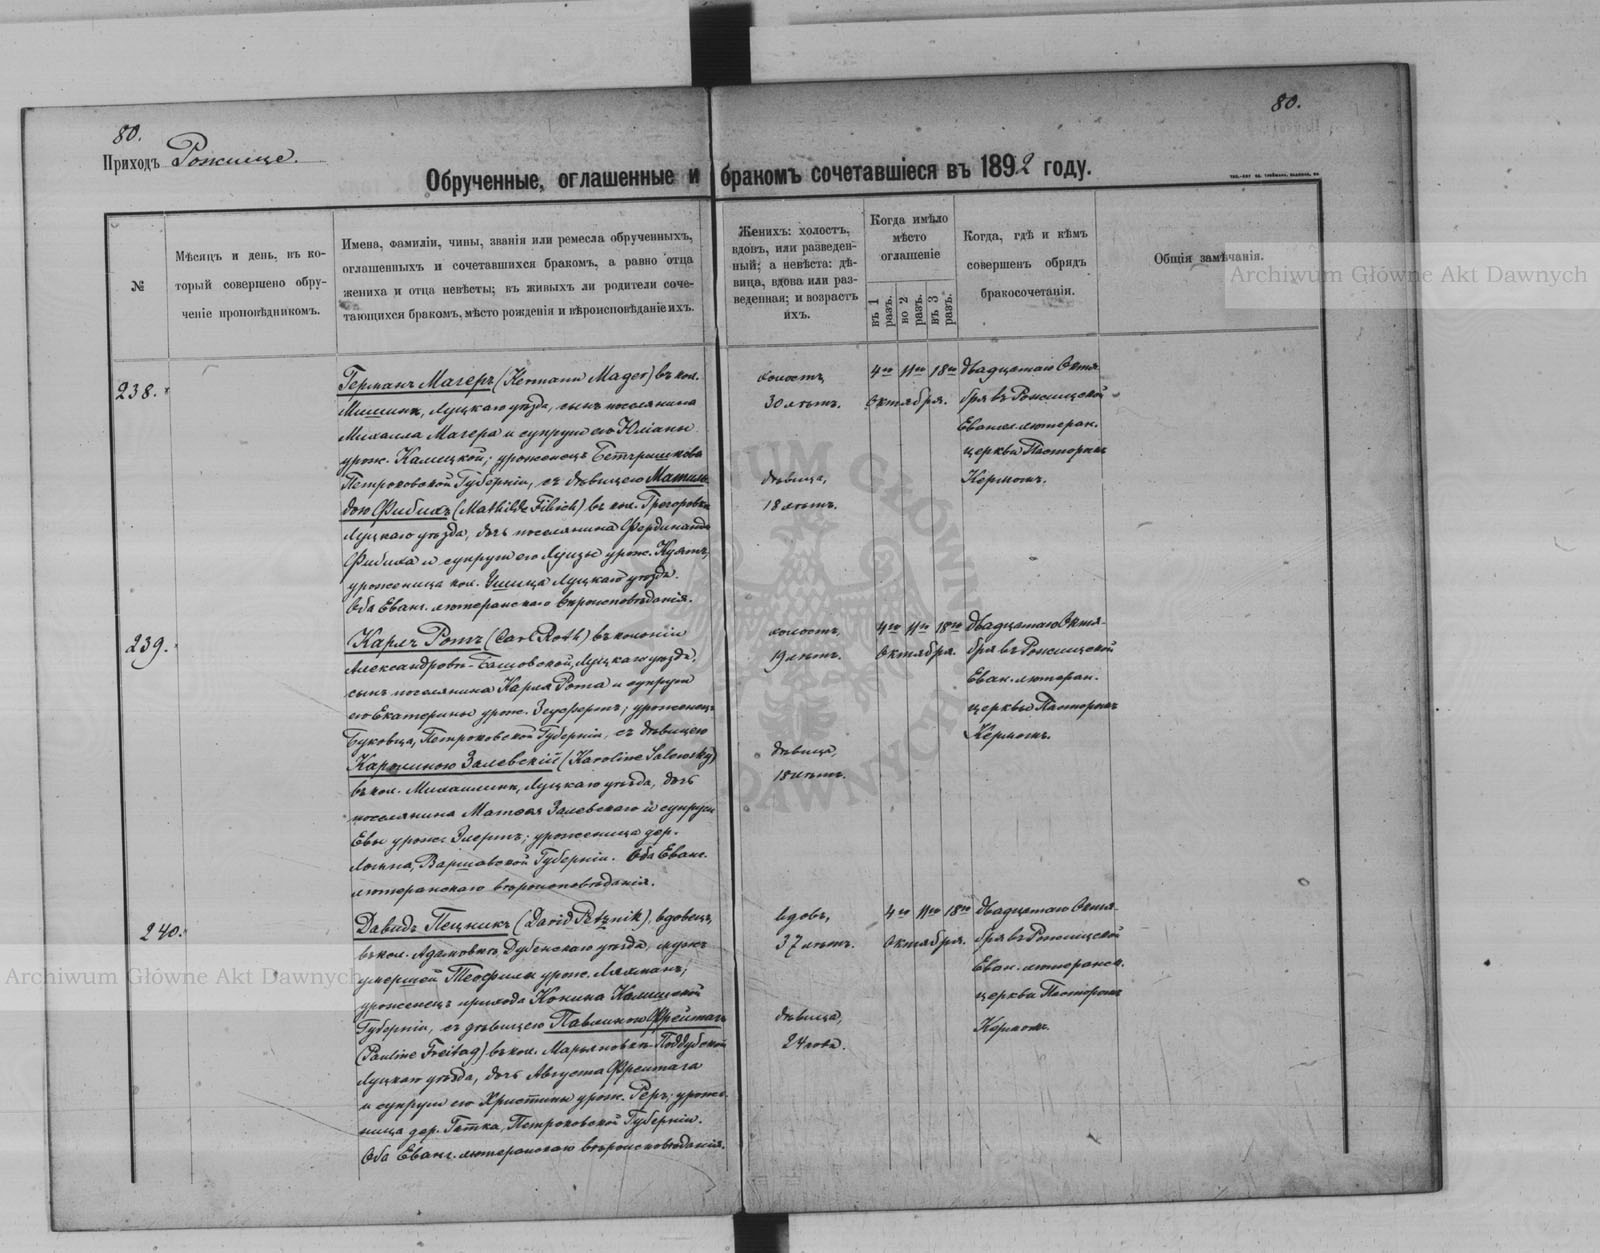 80.
80.
Приходъ Рожище.
Обрученные, оглашенные и бракомъ сочетавшіеся въ 1892 году.
№
Мѣсяцъ и день, въ ко-
торый совершено обру-
ченіе проповѣдникомъ.
Имена, фамиліи, чины, званія или ремесла обрученныхъ,
оглашенныхъ и сочетавшихся бракомъ, а равно отца
жениха и отца невѣсты; въ живыхъ ли родители соче-
тающихся бракомъ, мѣсто рожденія и вѣроисповѣданіе ихъ.
Женихъ: холостъ,
вдовъ, или разведен-
ный; а невѣста: дѣ-
вица, вдова или раз-
веденная; и возрастъ
ихъ.
Когда имѣло
мѣсто
оглашеніе
въ 1 разъ.
во 2 разъ.
въ 3 разъ.
Когда, гдѣ и кѣмъ
совершенъ обрядъ
бракосочетанія.
Общія замѣчанія.
Archiwum Główne Akt Dawnych
238.
Германъ Магеръ (Hermann Mager) въ кол.
Луцкаго уѣзда, сынъ поселянина
Михаила Магера и супруги его Юліаны
урож. Калицкой; уроженецъ
Петроковской Губерніи, съ дѣвицею Матиль-
дою Фибихъ (Mathilde Fibich) въ кол.
Луцкаго уѣзда, дочь поселянина Фердинанда
Фибиха и супруги его Луизы урож.
уроженица кол. Луцкаго уѣзда.
Оба Еванг. лютеранскаго вѣроисповѣданія.
холостъ,
30 лѣтъ.
дѣвица,
18 лѣтъ.
4го 11го 18го
Октября.
двадцатаго Октя-
бря въ Рожищской
Еванг. лютеран.
церкви Пасторомъ
Кермомъ.
239.
Карлъ Ротъ (Carl Roth) въ колоніи
Луцкаго уѣзда,
сынъ поселянина Карла Рота и супруги
его Екатерины урож. Зейфертъ; уроженецъ
Буковца, Петроковской Губерніи, съ дѣвицею
Каролиною Залевскій (Karoline Salewsky)
въ кол. Михаилинк, Луцкаго уѣзда, дочь
поселянина Матвея Залевскаго и супруги
Евы урож. уроженица дер.
Варшавской Губерніи. Оба Еванг.
лютеранскаго вѣроисповѣданія.
холостъ,
19 лѣтъ.
дѣвица,
18 лѣтъ.
4го 11го 18го
Октября.
двадцатаго Октя-
бря въ Рожищской
Еван. лютеран.
церкви Пасторомъ
Кермомъ.
240.
Давидъ Пецникъ (David Petznik), вдовецъ,
въ кол. Адамовкѣ, Дубенскаго уѣзда, мужъ
умершей Теофилы урож. Лахманъ;
уроженецъ прихода Конина Калишской
Губерніи, съ дѣвицею Павлиною Фрейтагъ
(Pauline Freitag) въ кол. Марьяновкѣ-Поддубской
Луцкаго уѣзда, дочь Августа Фрейтага
и супруги его Христины урож. Реръ; уроже-
ница дер. Петроковской Губерніи.
Оба Еванг. лютеранскаго вѣроисповѣданія.
вдовъ,
37 лѣтъ.
дѣвица,
24 года.
4го 11го 18го
Октября.
двадцатаго Октя-
бря въ Рожищской
Еван. лютеранск.
церкви Пасторомъ
Кермомъ.
Archiwum Główne Akt Dawnych